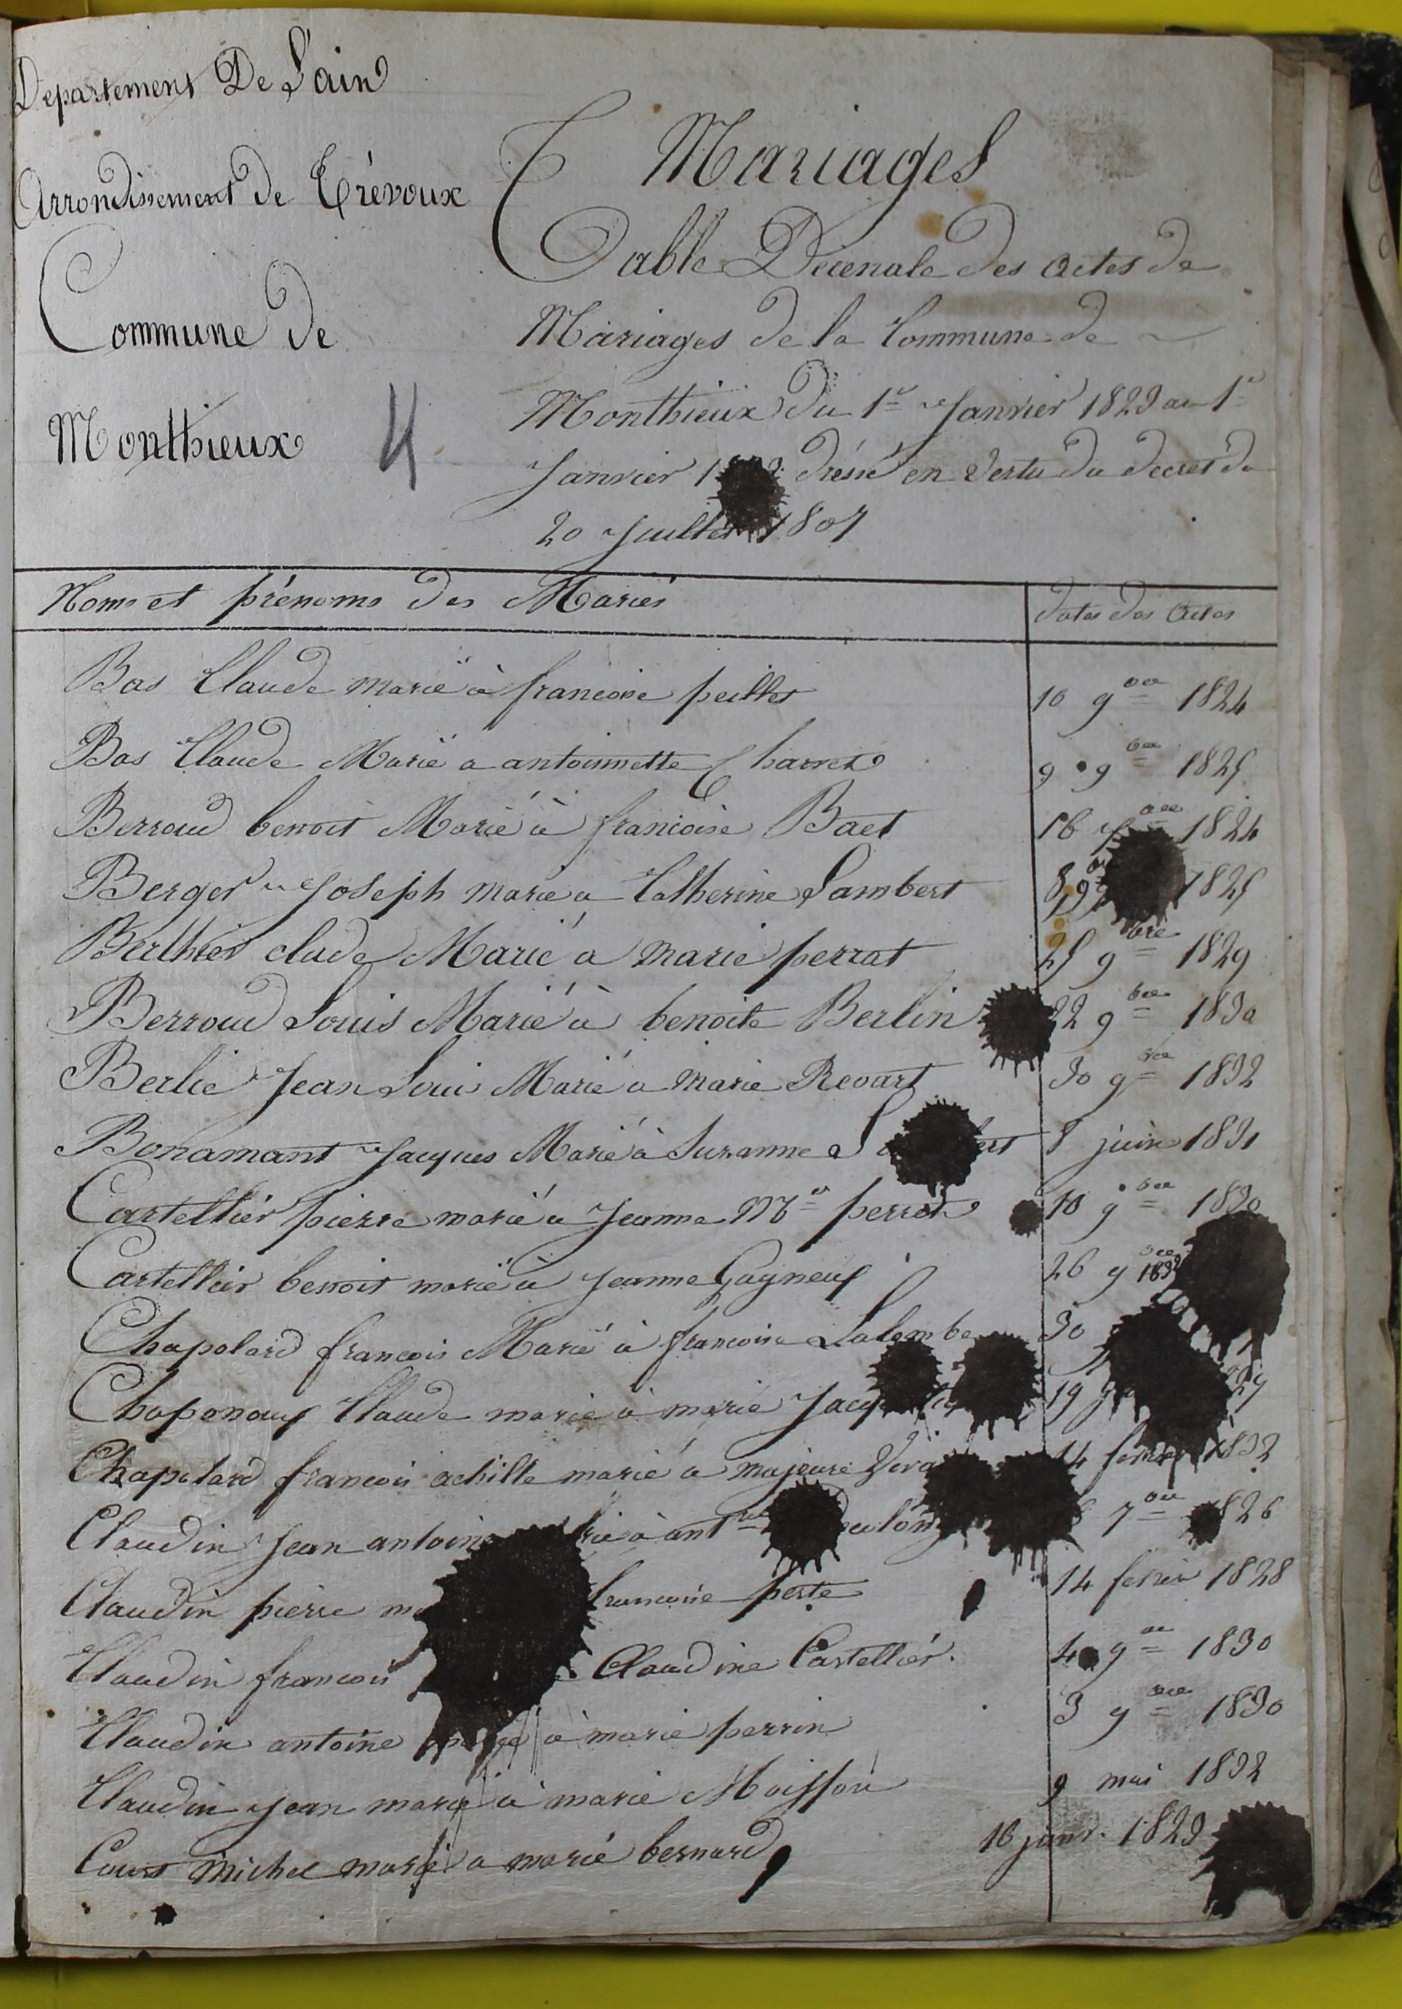 Departement De L'ain
Arrondissement de Trévoux
Commune de
Monthieux
4
Mariages
Table Decenale des actes de
Mariages de la Commune de
Monthieux du 1er Janvier 1823 au 1er
Janvier dréssé en Vertu du decret du
20 Juillet 1807
Noms et prénoms des Mariés
dates des actes
Bas Claude marié à francoise peillet 10 9bre 1824
Bas Claude Marié a antoinnette Charret 9 9bre 1825
Berroud benoit Marié à francoise Baet 16 1824
Berger Joseph marié a Catherine Lambert 1825
Berthier clude Marié a marie perrat 25 9bre 1829
Berroud Louis Marié à benoite Berlin 22 9bre 1830
Berlie Jean Louis Marié a marie Revart 30 9bre 1832
Bonamant Jacques Marié à Suzanne 8 juin 1831
Cartellier pierre marié a Jeanne Mie perrot 10 9bre 1830
Cartellier benoit marié à Jeanne Gagneux 26 9bre 1832
Chapolard francois Marié à francoise 30
Chaponoux Claude marié à marie 19
Chapolard francois achille marié a majeure 14 1832
Claudin Jean 7bre 1826
Claudin pierre francoise perte 14 fevrier 1828
Claudin francois Claudine Cartelliér. 4 9bre 1830
Claudin antoine marié à marie perrin 3 9bre 1830
Claudin Jean marié à marie Moisson 9 mai 1832
Court Michel marié a marié bernard 16 janv. 1823